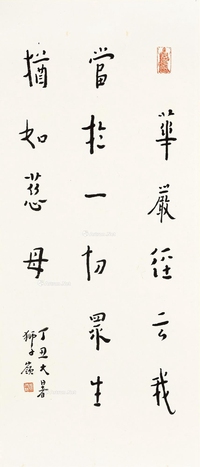 華嚴經云我
當於一切眾生
猶如慈母
丁丑大暑
獅子嶺